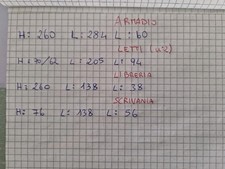 ARMADIO
H: 260 L: 284 L: 60
LETTI (n°2)
H: 70/62 L: 205 L: 94
LIBRERIA
H: 260 L: 138 L: 38
SCRIVANIA
H: 76 L: 138 L: 56